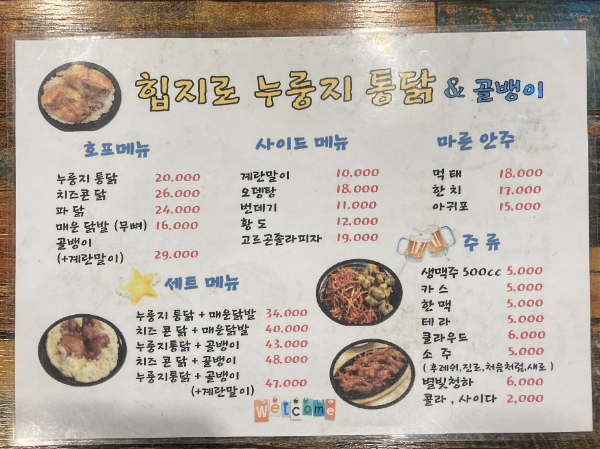 힙지로 누룽지 통닭 & 골뱅이
호프메뉴
누룽지 통닭 20.000
치즈콘 닭 26.000
파 닭 24.000
매운 닭발 (무뼈) 16.000
골뱅이
(+계란말이) 29.000
사이드 메뉴
계란말이 10.000
오뎅탕 18.000
번데기 11.000
황 도 12.000
고르곤졸라피자 19.000
마른 안주
먹 태 18.000
한 치 17.000
아귀포 15.000
세트 메뉴
누룽지 통닭 + 매운닭발 34.000
치즈 콘 닭 + 매운닭발 40.000
누룽지통닭 + 골뱅이 43.000
치즈 콘 닭 + 골뱅이 48.000
누룽지통닭 + 골뱅이
(+계란말이) 47.000
주 류
생맥주 500cc 5.000
카 스 5.000
한 맥 5.000
테 라 5.000
클라우드 6.000
소 주 5.000
( 후레쉬,진로,처음처럼,새로 )
별빛청하 6,000
콜라 , 사이다 2,000
Welcome